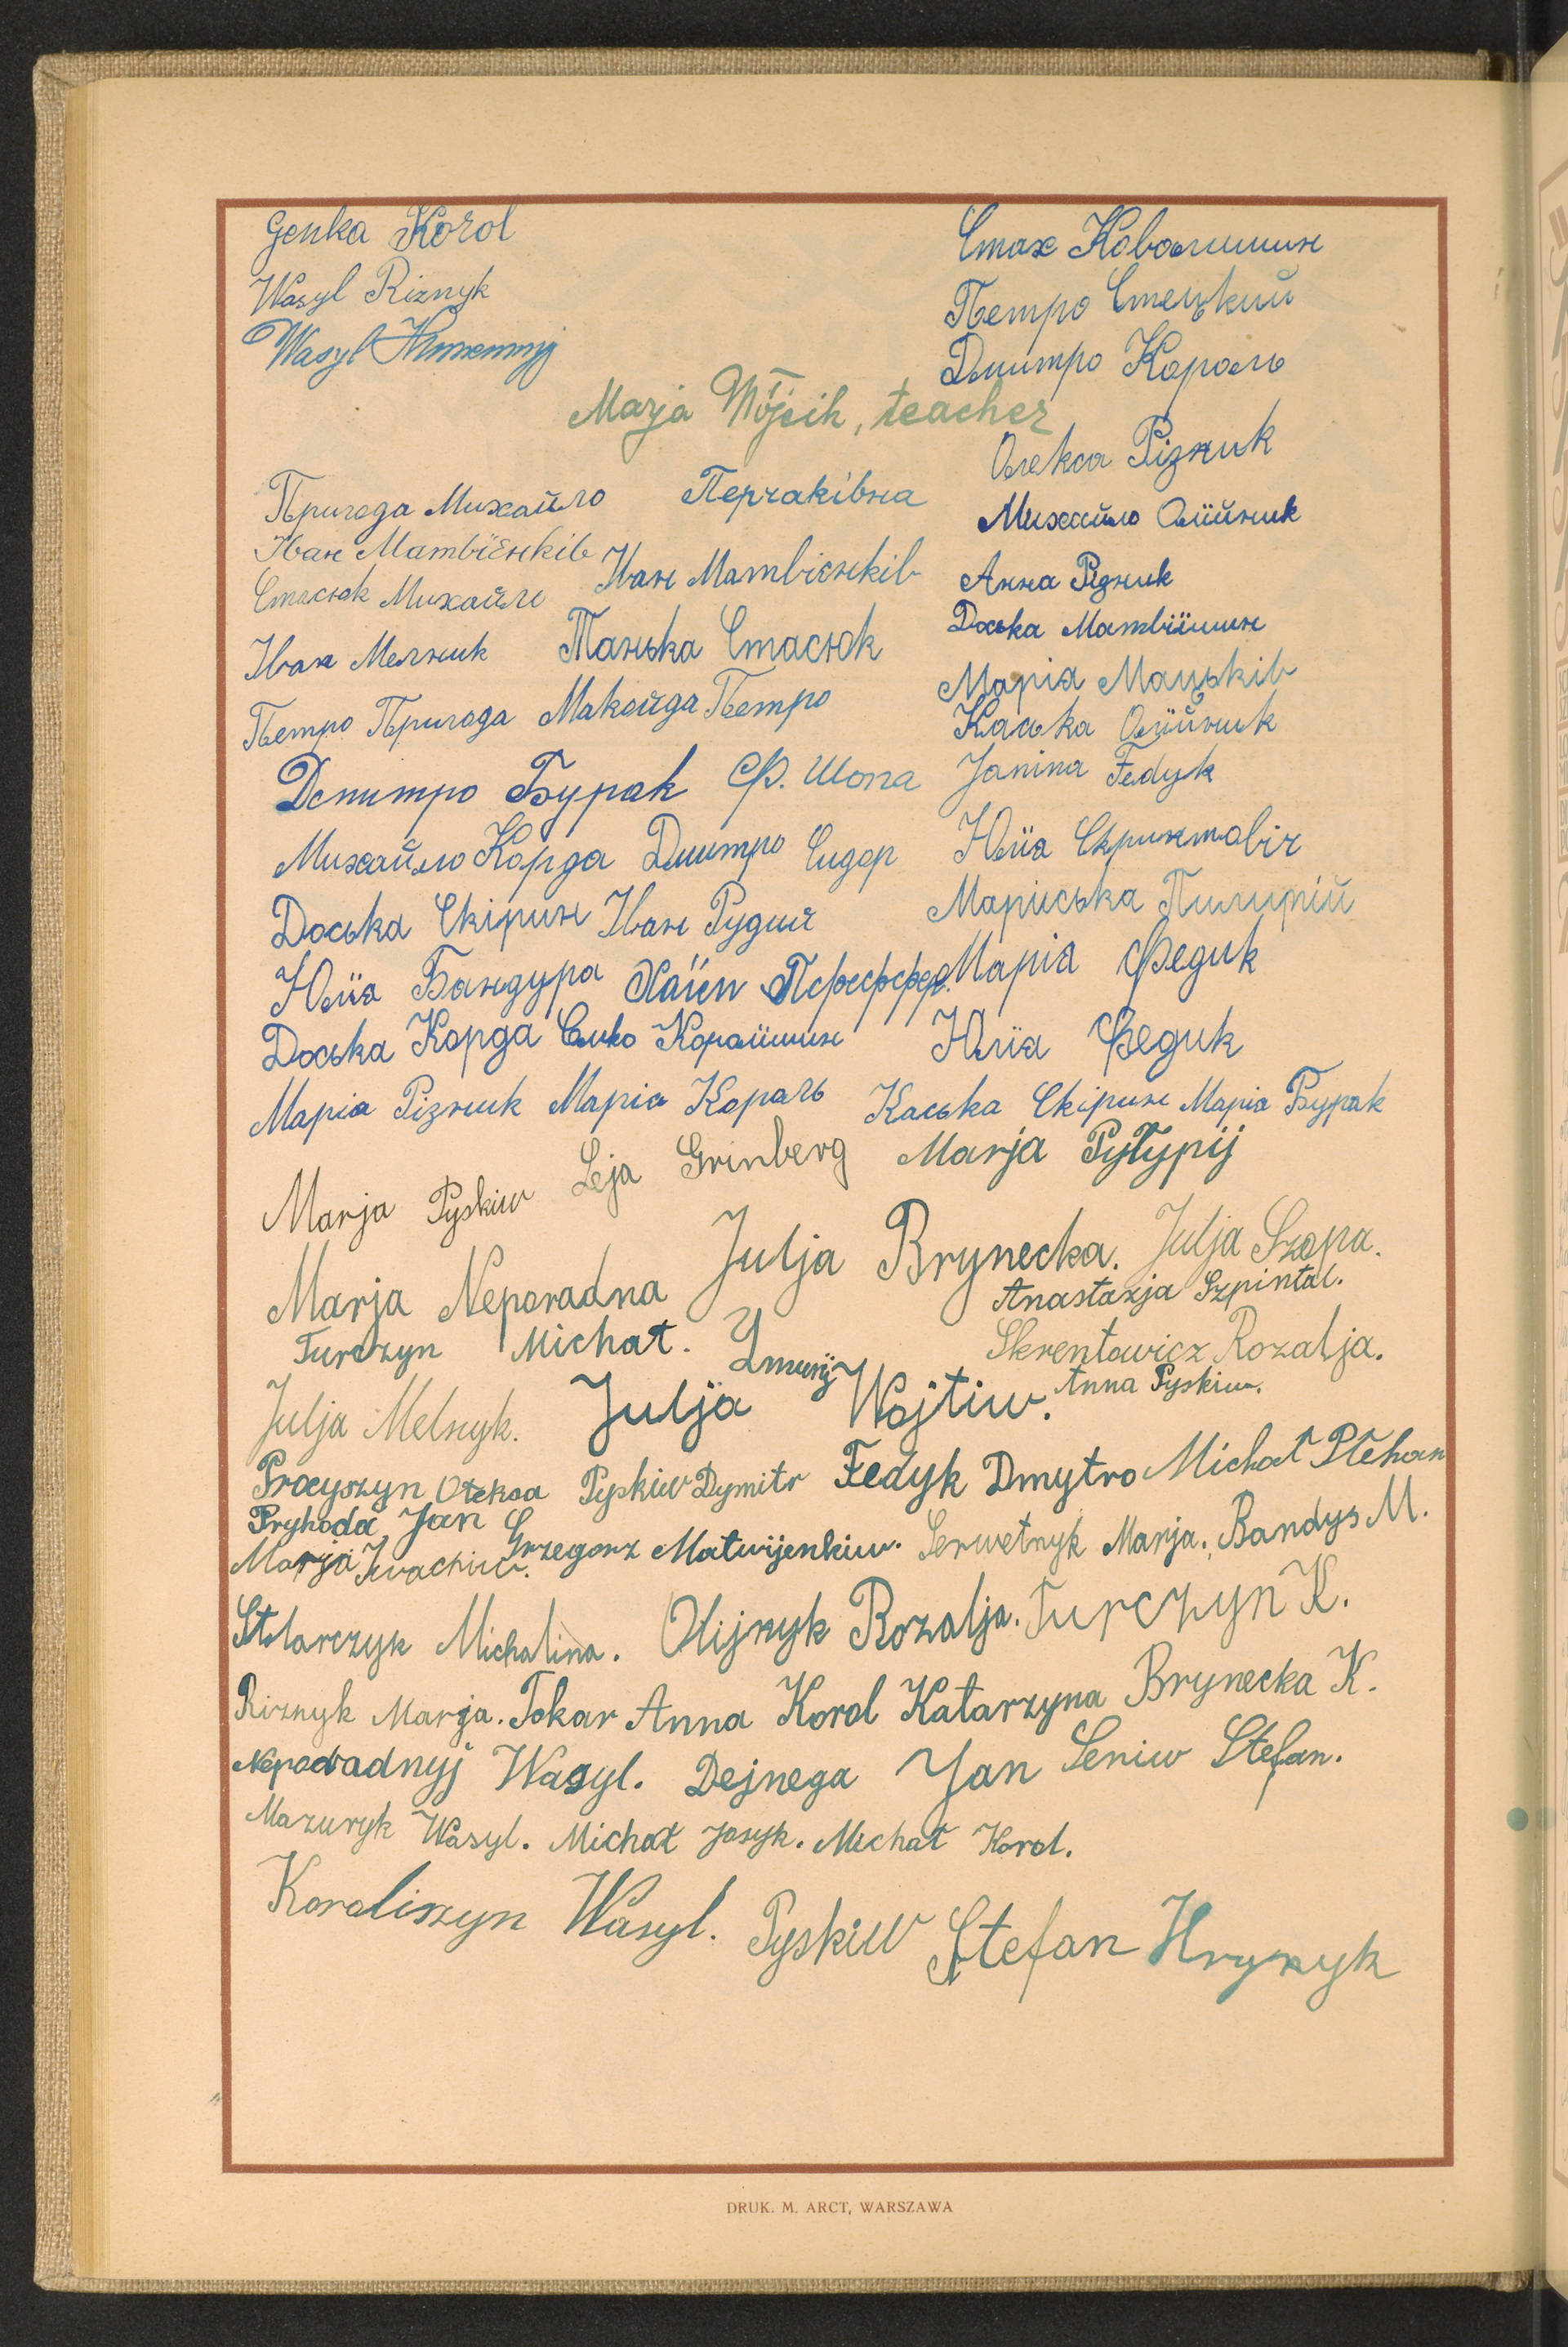 Genka Korol
Стах Коваличин
Wasyl Riznyk
Петро Стецький
Wasyl
Дмитро Король
Marja Wójcik, teacher
Олекса Різник
Пригода Михайло Перчаківна
Михайло Олїйник
Іван Матвїєнків
Іван Матвієнків
Стасюк Михайло
Анна Різник
Доська Матвіїшин
Іван Мелник Танька Стасюк
Марія Мацьків
Петро Пригода Макойда Петро
Каська Олїйник
Janina Fedyk
Дмитро Бурак Ф. Шопа
Михайло Корда Дмитро Сидор
Юлїа Скринтовіч
Доська Скірин Іван Рудий
Мариська Пилипій
Юлїа Бандура Хаїєм Пфеффер.
Марія Федик
Доська Корда Олько Кораїшин
Юлїа Федик
Маріа Різник Маріа Король Каська Скірин Маріа Бурак
Marja Pyskiw Leja Grinberg Marja Pyłypij
Marja Neporadna Julja Brynecka. Julja Szopa.
Anastazja Szpintal.
Turczyn Michał.
Skrentowicz Rozalja.
Julja Melnyk. Julja Wojtiw. Anna Pyskiw.
Procyszyn Ołeksa Pyskiw Dymitr Fedyk Dmytro Michał Płehan
Pryhoda Jan Grzegorz Matwijenkiw. Serwetnyk Marja. Bandys M.
Marja Iwachiw.
Stolarczyk Michalina. Olijnyk Rozalja. Turczyn K.
Riznyk Marja. Tokar Anna Korol Katarzyna Brynecka K.
Neporadnyj Wasyl. Dejnega Jan Seniw Stefan.
Mazuryk Wasyl. Michał Jasyk. Michał Korol.
Koraliszyn Wasyl. Pyskiw Stefan Hrynyk
DRUK. M. ARCT, WARSZAWA